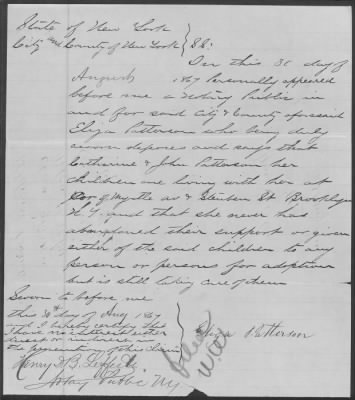 State of New York
City and County of New York } SS:
On this 30 day of
August 1867 Personally appeared
before me a Notary Public in
and for said City & County aforesaid
Eliza Patterson who being duly
sworn deposes and says that
Catharine & John Patterson her
children are living with her at
Cor of Myrtle av & Steuben St Brooklyn
N. Y. and that she never has
abandoned their support or given
either of the said children to any
person or persons for adoption
but is still taking care of them
Sworn to before me
this 30th day of Aug 1867
I hereby certify that
I have no interest either
direct or indirect in
the prosecution of this claim
Eliza Patterson
Henry B.
Notary Public NY